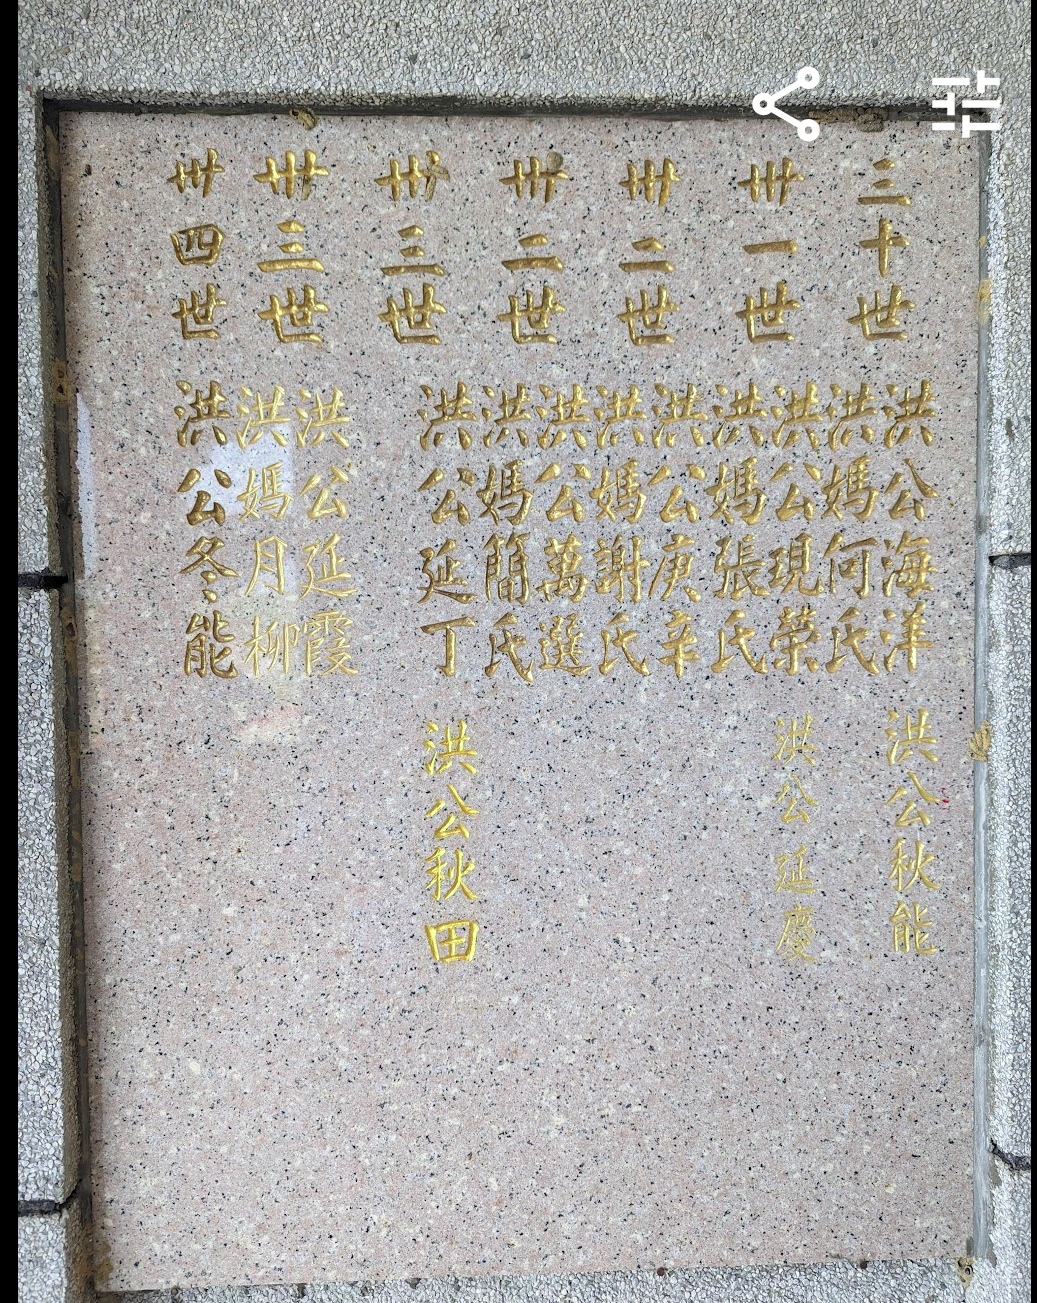 三十世
卅一世
卅二世
卅二世
卅三世
卅三世
卅四世
洪公海洋
洪媽何氏
洪公現榮
洪媽張氏
洪公庚辛
洪媽謝氏
洪公萬選
洪媽簡氏
洪公延丁
洪公延霞
洪媽月柳
洪公冬能
洪公秋能
洪公延慶
洪公秋田